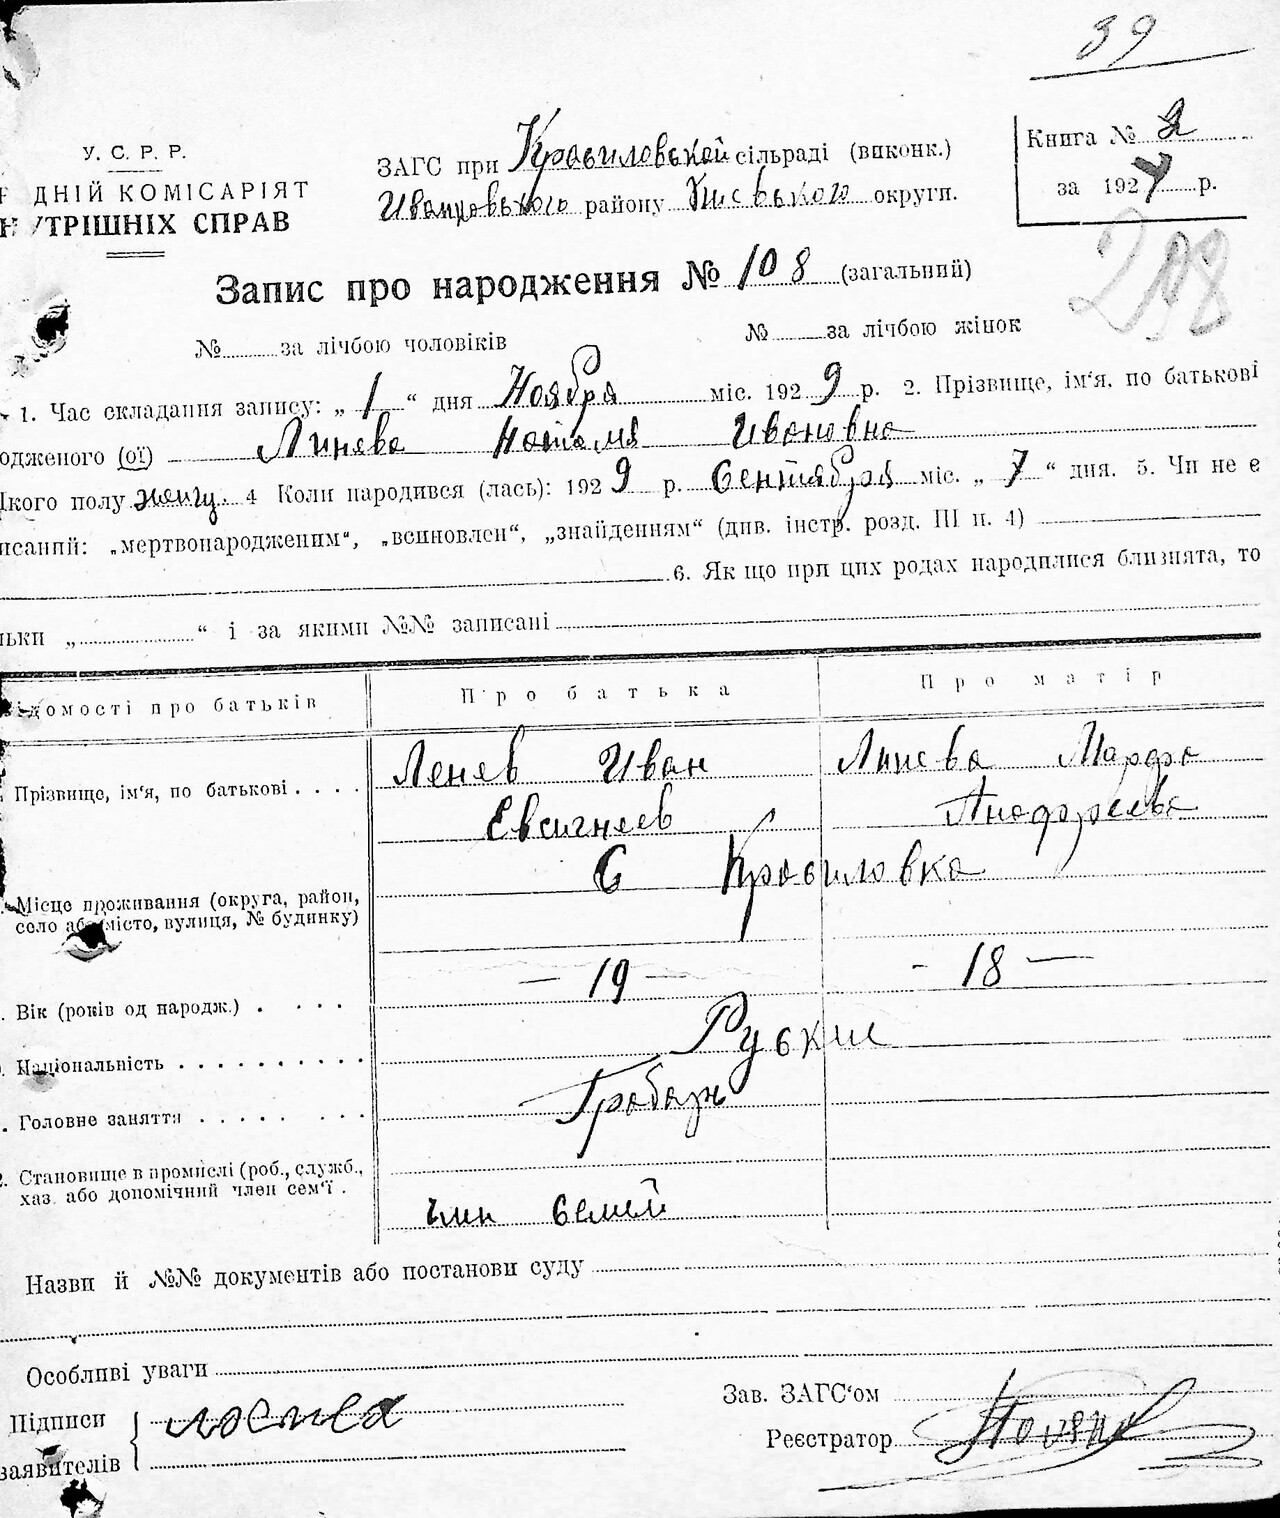 39
У. С. Р. Р.
ДНІЙ КОМІСАРІЯТ
УТРІШНІХ СПРАВ
ЗАГС при Кросиловской сільраді (виконк.)
Иванковського району Киевського округи.
Книга № 2
за 192 р.
298
Запис про народження № 108 (загальний)
№ за лічбою чоловіків № за лічбою жінок
1. Час складання запису: „ 1 “ дня Ноября міс. 1929 р. 2. Прізвище, ім‘я, по батькові
одженого (ої) Линева Наталия Ивановна
якого полу женщ. 4 Коли народився (лась): 1929 р. Сентября міс. „ 7 “ дня. 5. Чи не є
исаний: „мертвонародженим“, „всиновлен“, „знайденням“ (див. інстр. розд. III п. 4)
6. Як що при цих родах народилися близнята, то
льки „ “ і за якими №№ записані
відомості про батьків Про батька Про матір
Прізвище, ім‘я, по батькові . . . . Ленев Иван Линева Марфа
Евсигнеев
С Кросиловка
Місце проживання (округа, район,
село або місто, вулиця, № будинку)
Вік (років од народж.) . . . . — 19 — - 18 —
Національність . . . . . . . . . . Руские
Головне заняття . . . . . . . . Грабарь
Становище в промислі (роб., служб.,
хаз. або допоміч­ний член сем‘ї .
член семей
Назви й №№ документів або постанови суду
Особливі уваги
Підписи
заявителів
Зав. ЗАГС‘ом
Реєстратор